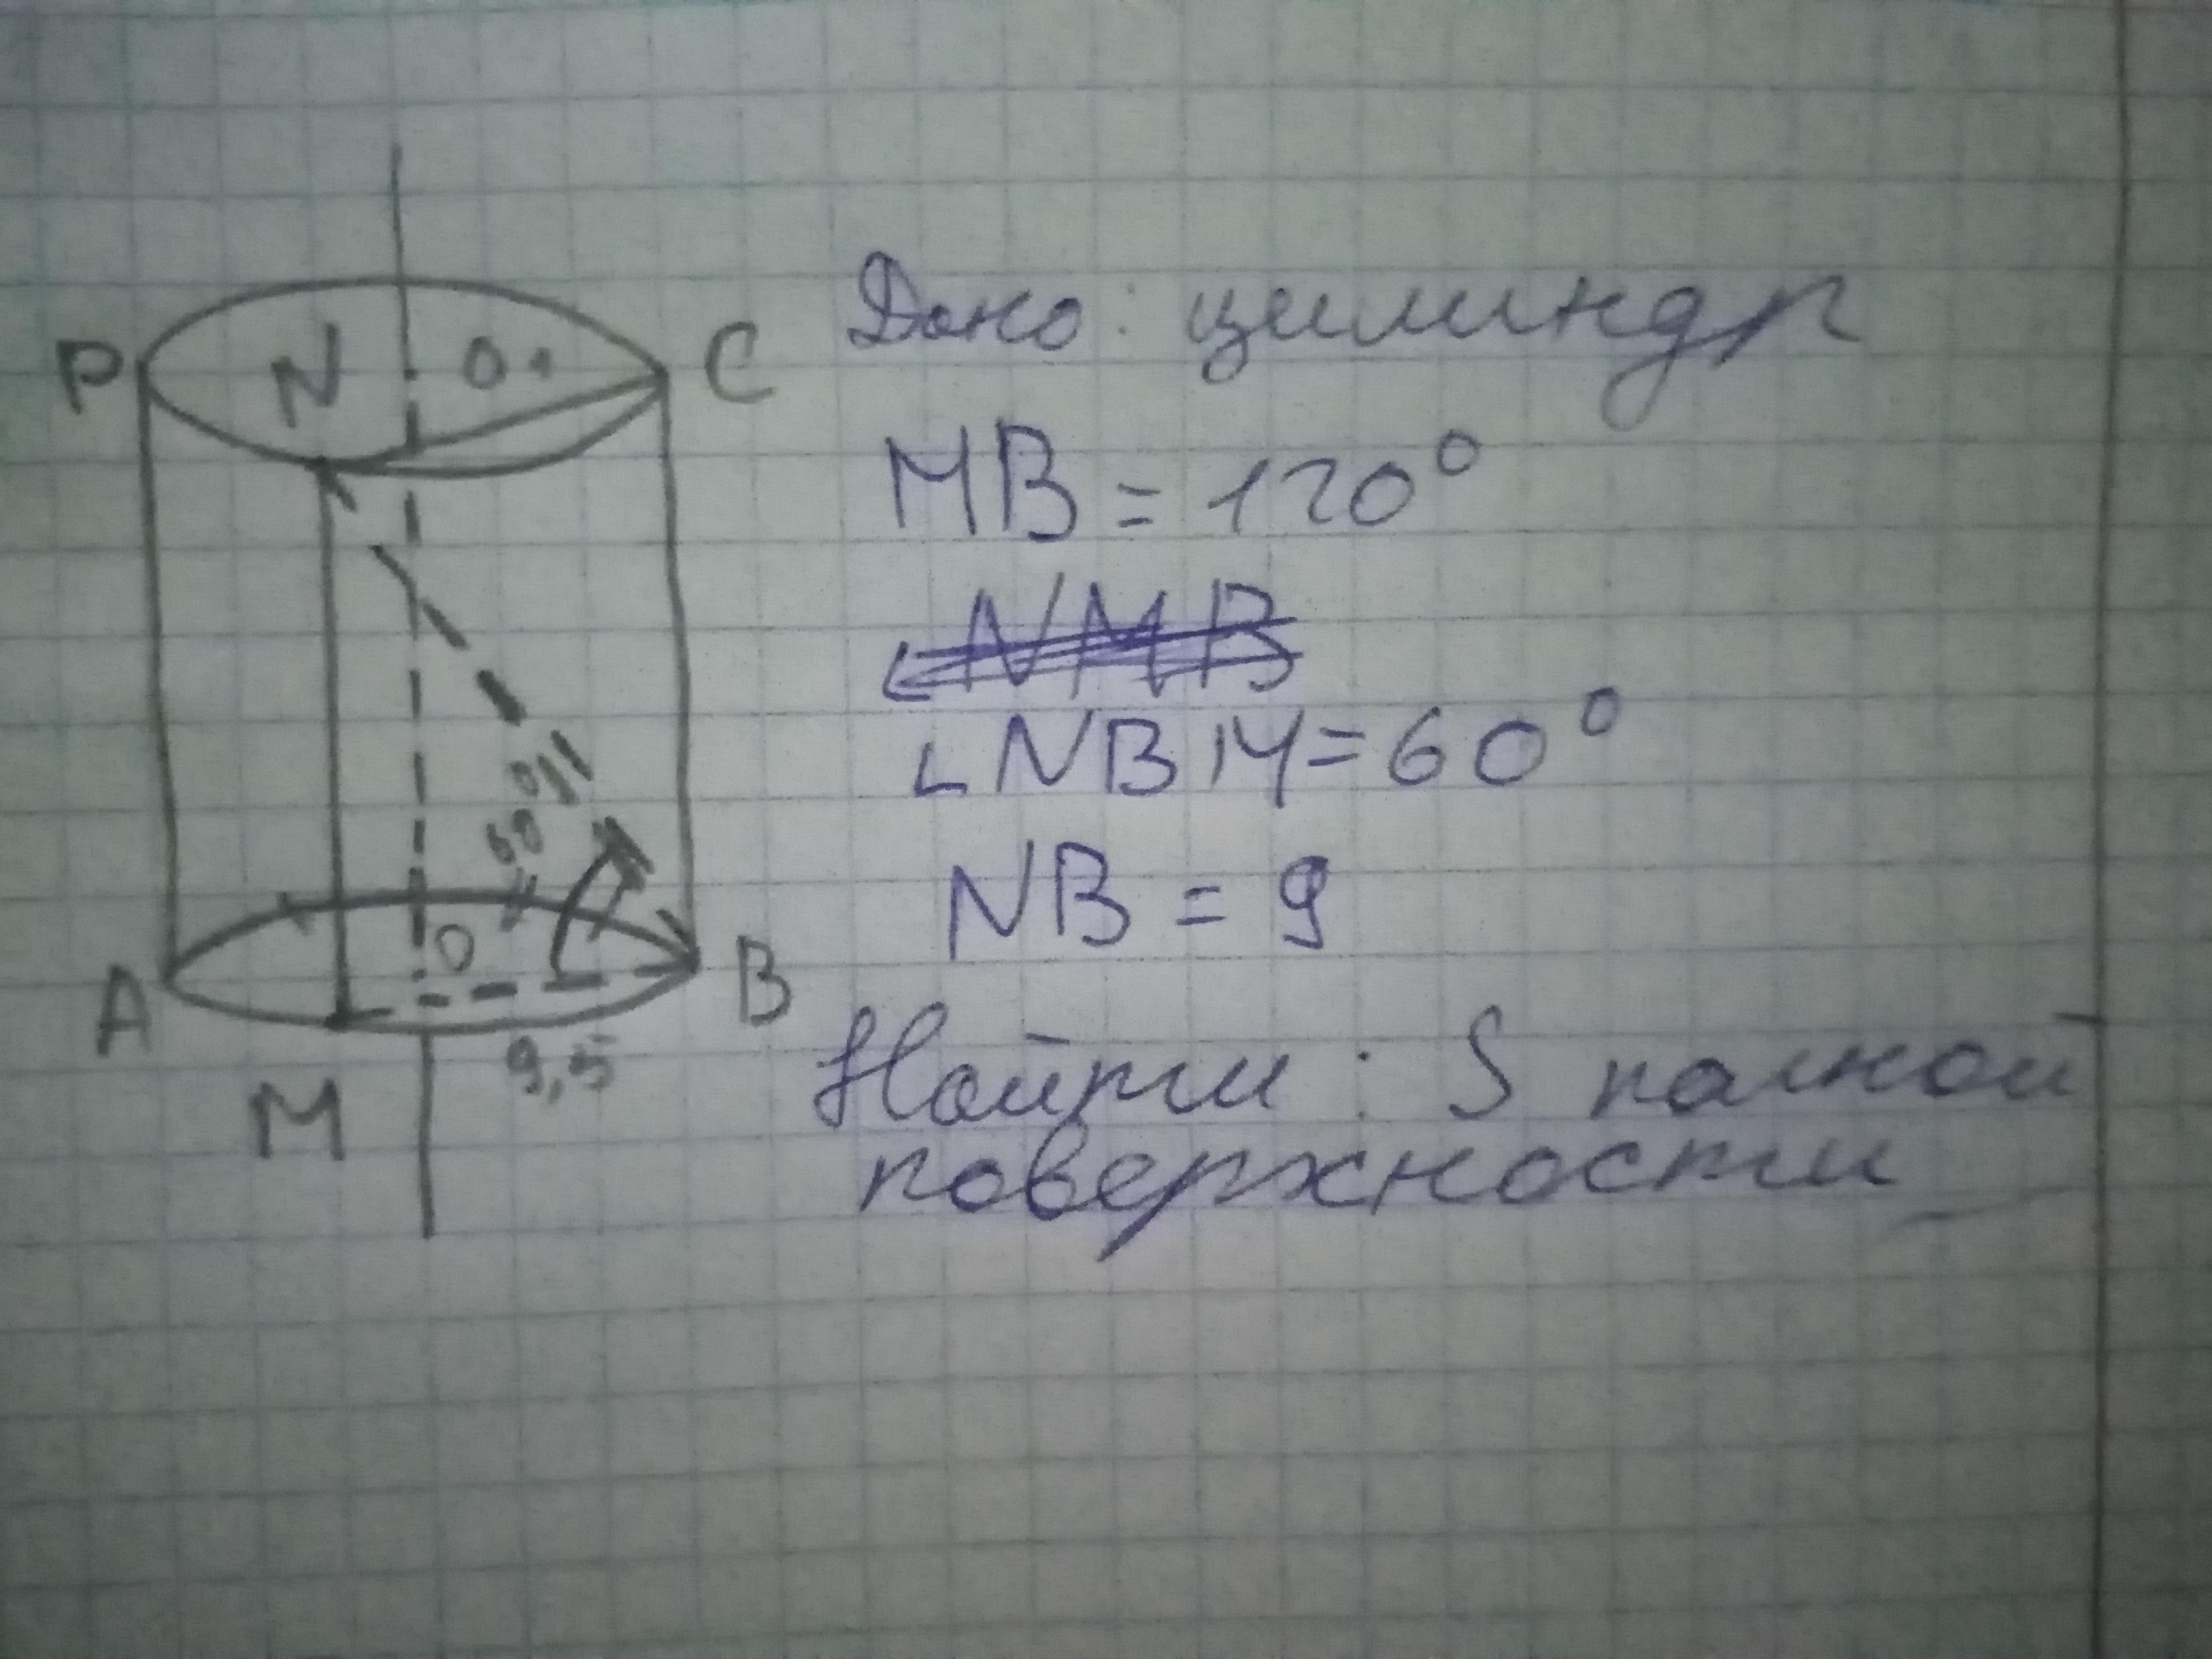 P N O₁ C
Дано: цилиндр
MB = 120°
∠NMB
∠NBM = 60°
60°
NB = 9
A O B
9,5
M
Найти: S полной
поверхности